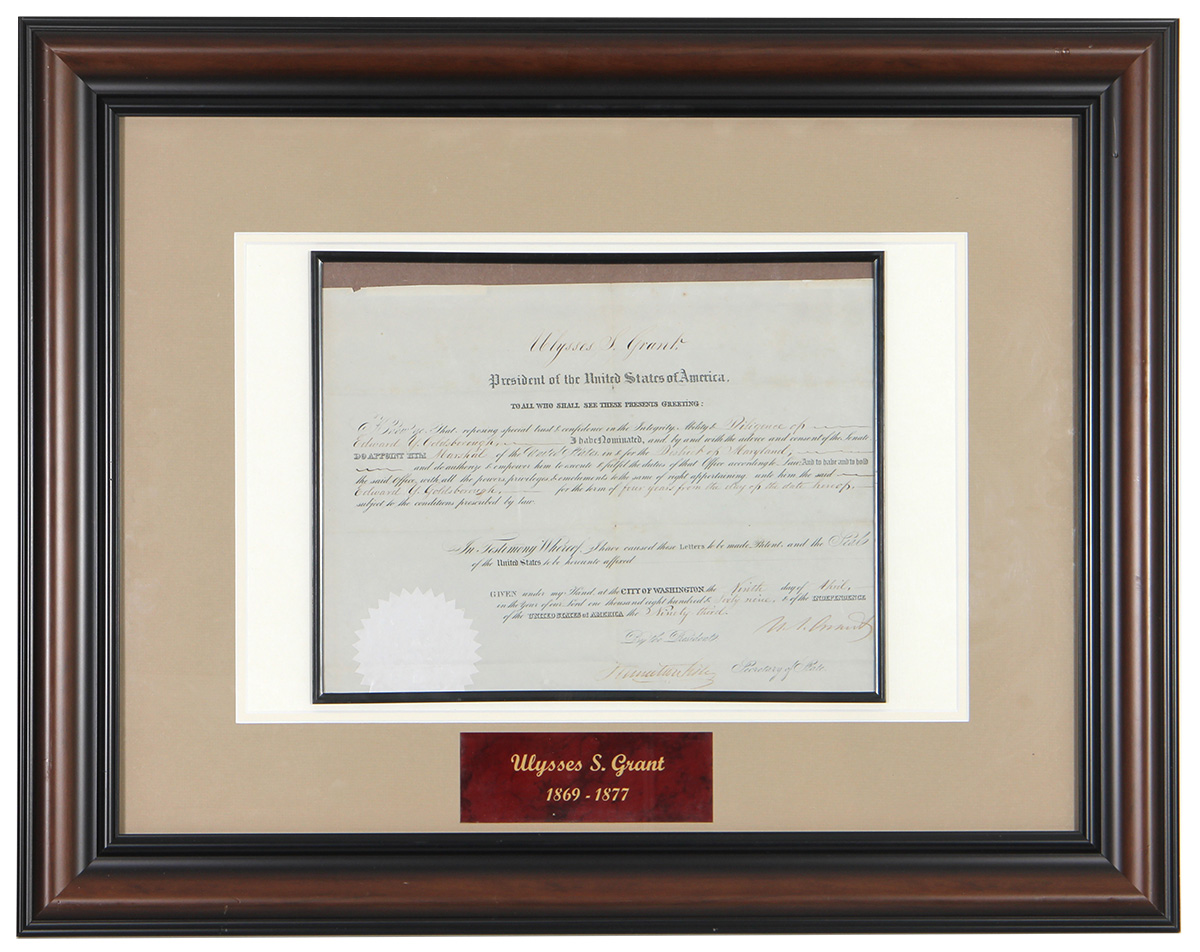 Ulysses S. Grant
President of the United States of America.
TO ALL WHO SHALL SEE THESE PRESENTS GREETING:
That reposing special trust & confidence in the Integrity Ability & Diligence of
Edward Y. Goldsborough, I have Nominated, and by and with the advice and consent of the Senate
DO APPOINT HIM Marshal of the United States in & for the District of Maryland,
and do authorize & empower him to execute & fulfil the duties of that Office according to Law: And to have and to hold
the said Office with all the powers privileges & emoluments to the same of right appertaining unto him the said
Edward Y. Goldsborough, for the term of four years from the day of the date hereof,
subject to the conditions prescribed by law.
In Testimony Whereof, I have caused these Letters to be made Patent, and the Seal
of the United States to be hereunto affixed
GIVEN under my Hand, at the CITY OF WASHINGTON the Ninth day of April,
in the Year of our Lord one thousand eight hundred & sixty nine, & of the INDEPENDENCE
of the UNITED STATES OF AMERICA the Ninety third.
U. S. Grant
By the President
Hamilton Fish Secretary of State.
Ulysses S. Grant
1869 - 1877